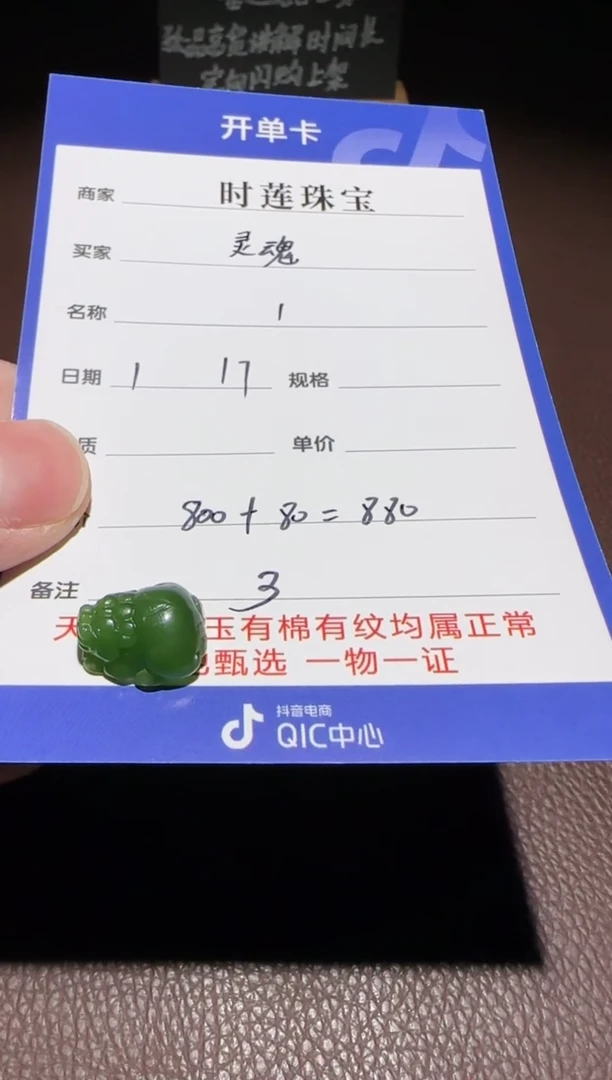 开单卡
商家 时莲珠宝
买家 灵魂
名称 1
日期 1 17 规格
质 单价
800+80=880
备注 3
天 玉有棉有纹均属正常
甄选 一物一证
抖音电商
QIC中心